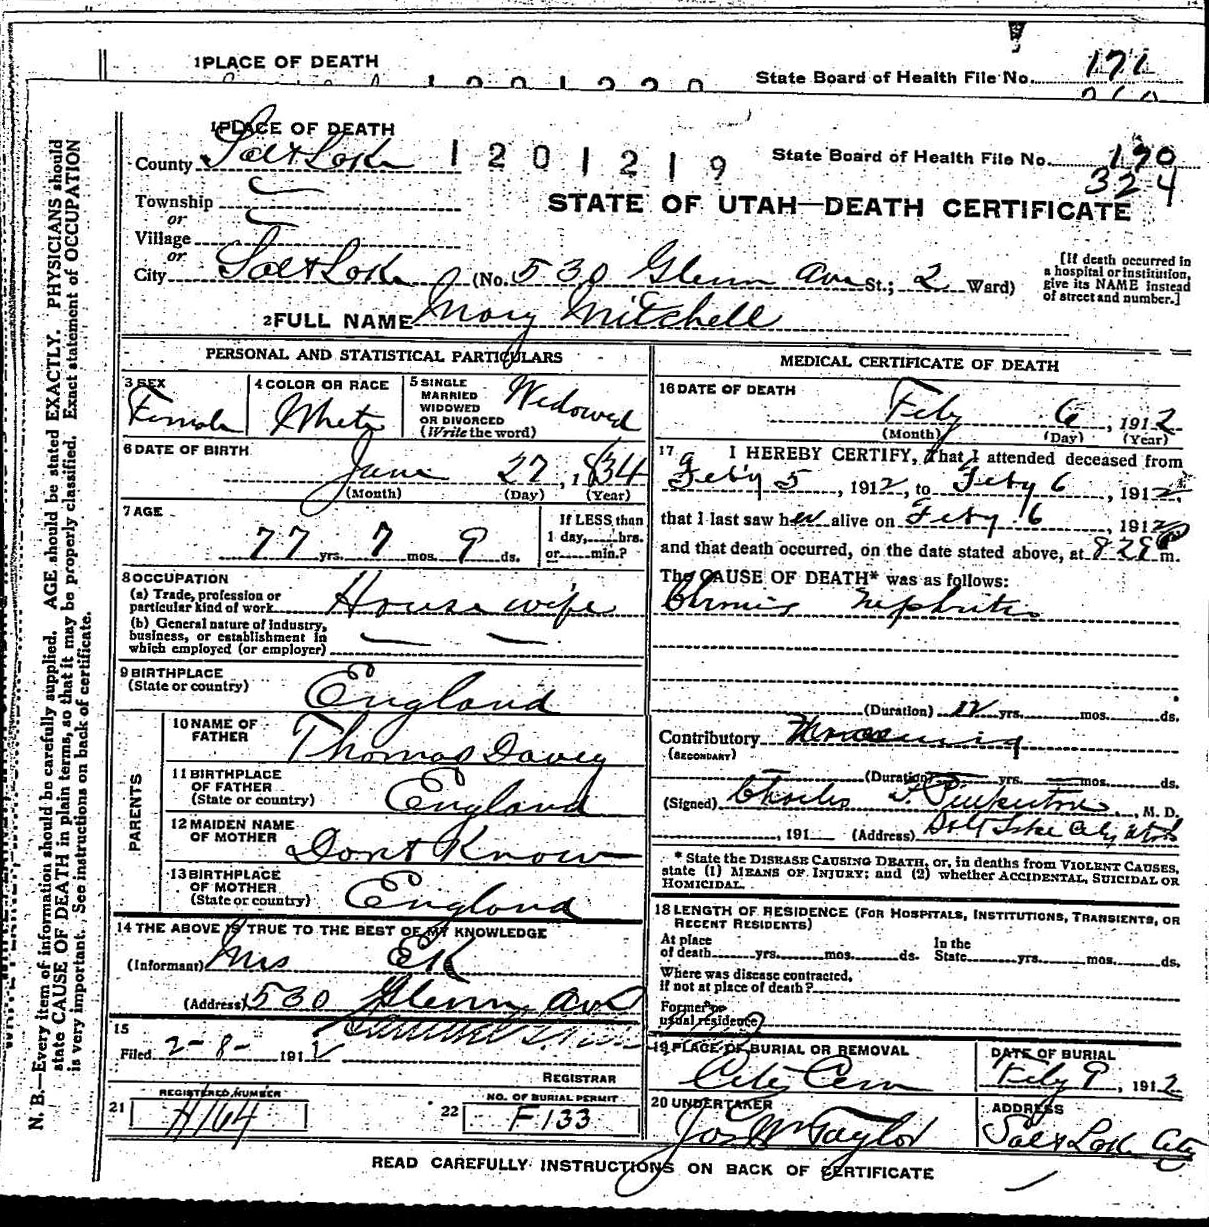 1 PLACE OF DEATH
State Board of Health File No. 171
1 PLACE OF DEATH
County Salt Lake
1201219
State Board of Health File No. 170
324
Township
or
Village
or
STATE OF UTAH—DEATH CERTIFICATE
City Salt Lake (No. 530 Glenn Ave St.; 2 Ward)
[If death occurred in a hospital or institution, give its NAME instead of street and number.]
2 FULL NAME Mary Mitchell
PERSONAL AND STATISTICAL PARTICULARS
3 SEX Female
4 COLOR OR RACE White
5 SINGLE MARRIED WIDOWED OR DIVORCED (Write the word) Widowed
6 DATE OF BIRTH
June 27, 1834
(Month) (Day) (Year)
7 AGE
77 yrs. 7 mos. 9 ds.
If LESS than 1 day, hrs. or min.?
8 OCCUPATION
(a) Trade, profession or particular kind of work House wife
(b) General nature of industry, business, or establishment in which employed (or employer)
9 BIRTHPLACE (State or country) England
PARENTS
10 NAME OF FATHER Thomas Davey
11 BIRTHPLACE OF FATHER (State or country) England
12 MAIDEN NAME OF MOTHER Dont Know
13 BIRTHPLACE OF MOTHER (State or country) England
14 THE ABOVE IS TRUE TO THE BEST OF MY KNOWLEDGE
(Informant) Mrs EK
(Address) 530 Glenn Ave
15
Filed 2-8- 1912
REGISTRAR
21 REGISTERED NUMBER H164
22 NO. OF BURIAL PERMIT F133
MEDICAL CERTIFICATE OF DEATH
16 DATE OF DEATH
Feby 6, 1912
(Month) (Day) (Year)
17 I HEREBY CERTIFY, That I attended deceased from
Feby 5, 1912, to Feby 6, 1912.
that I last saw her alive on Feby 6, 1912
and that death occurred, on the date stated above, at 8 28 P m.
The CAUSE OF DEATH* was as follows:
Chronic Nephritis
(Duration) yrs. mos. ds.
Contributory
(SECONDARY)
(Duration) yrs. mos. ds.
(Signed) Charles F. Pinkerton, M. D.
, 191 (Address) Salt Lake City Utah
* State the DISEASE CAUSING DEATH, or, in deaths from VIOLENT CAUSES, state (1) MEANS OF INJURY; and (2) whether ACCIDENTAL, SUICIDAL OR HOMICIDAL.
18 LENGTH OF RESIDENCE (FOR HOSPITALS, INSTITUTIONS, TRANSIENTS, OR RECENT RESIDENTS)
At place of death yrs. mos. ds. In the State yrs. mos. ds.
Where was disease contracted, if not at place of death?
Former or usual residence
19 PLACE OF BURIAL OR REMOVAL City Cem
DATE OF BURIAL Feby 9, 1912
20 UNDERTAKER Jos Wm Taylor
ADDRESS Salt Lake City
READ CAREFULLY INSTRUCTIONS ON BACK OF CERTIFICATE
N. B.—Every item of information should be carefully supplied. AGE should be stated EXACTLY. PHYSICIANS should
state CAUSE OF DEATH in plain terms, so that it may be properly classified. Exact statement of OCCUPATION
is very important. See instructions on back of certificate.